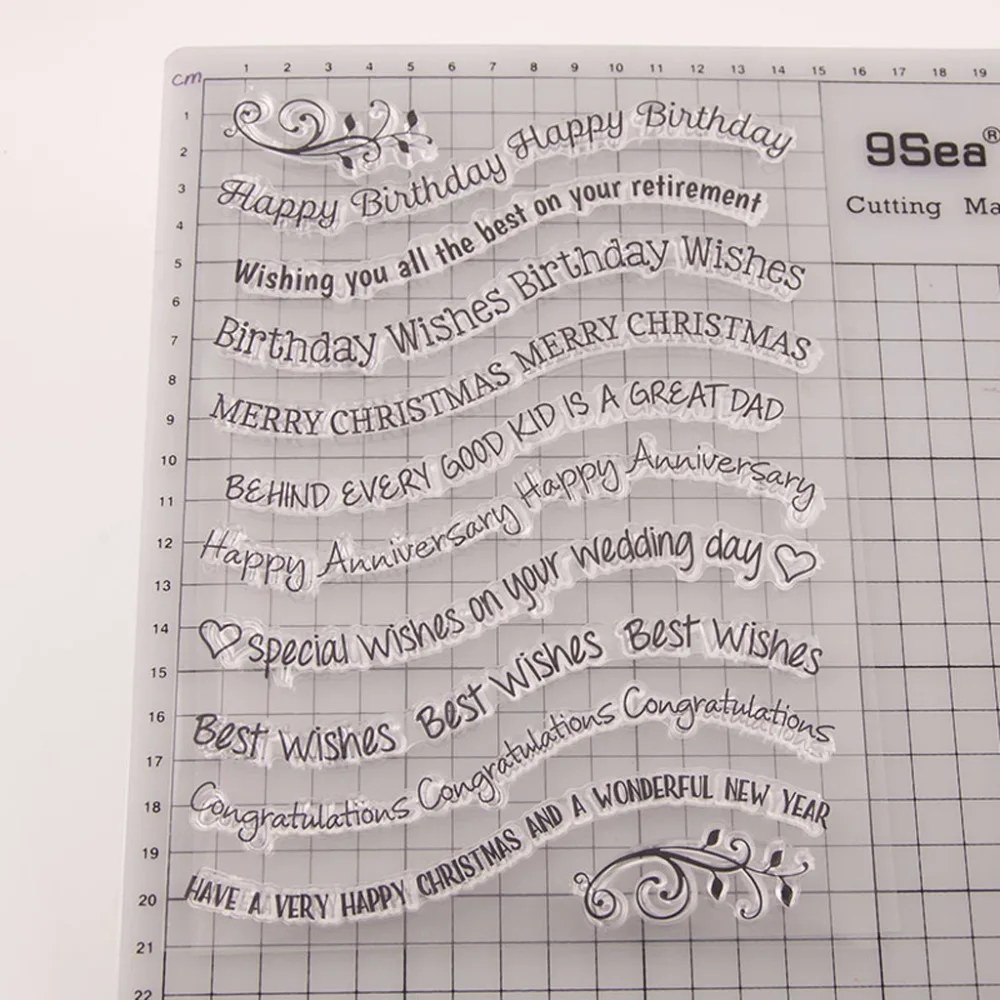 cm 1 2 3 4 5 6 7 8 9 10 11 12 13 14 15 16 17 18 19
1
2
3
4
5
6
7
8
9
10
11
12
13
14
15
16
17
18
19
20
21
22
9Sea®
Cutting Ma
Happy Birthday Happy Birthday
Wishing you all the best on your retirement
Birthday Wishes Birthday Wishes
MERRY CHRISTMAS MERRY CHRISTMAS
BEHIND EVERY GOOD KID IS A GREAT DAD
Happy Anniversary Happy Anniversary
special wishes on your wedding day
Best Wishes Best Wishes Best Wishes
Congratulations Congratulations Congratulations
HAVE A VERY HAPPY CHRISTMAS AND A WONDERFUL NEW YEAR